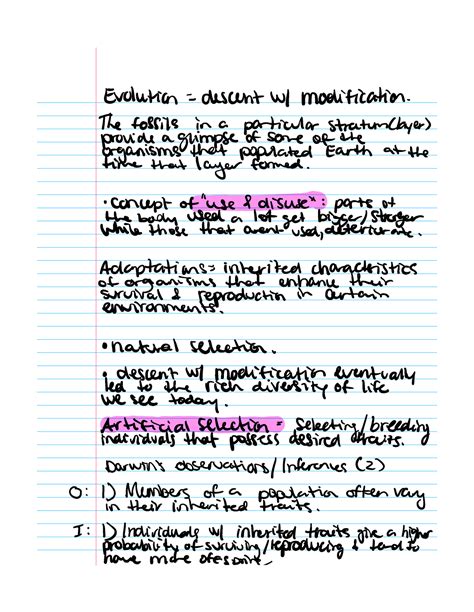 Evolution = descent w/ modification.
The fossils in a particular stratum(layer)
provide a glimpse of some of the
organisms that populated Earth at the
time that layer formed.
• concept of "use & disuse": parts of
the body used a lot get bigger/stronger
while those that arent used, deteriorate.
Adaptations= inherited characteristics
of organisms that enhance their
survival & reproduction in certain
environments.
• natural selection.
• descent w/ modification eventually
led to the rich diversity of life
we see today.
Artificial Selection = Selecting/breeding
individuals that possess desired traits.
Darwin's observations/Inferences (2)
O: 1) Members of a population often vary
in their inherited traits.
I: 1) Individuals w/ inherited traits give a higher
probability of surviving/reproducing & tend to
have more